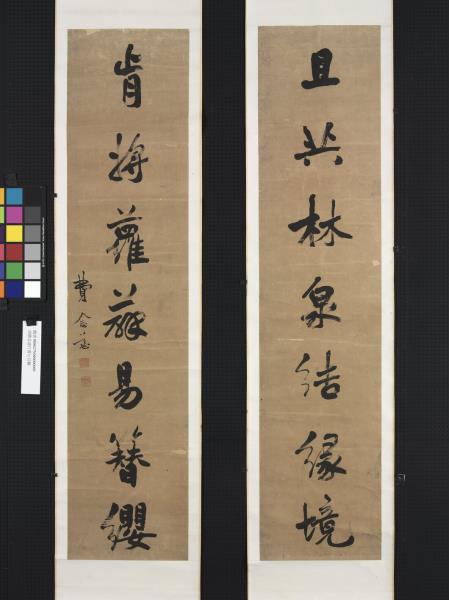 且共林泉結緣境
肯將蘿薜易簪纓
費念慈